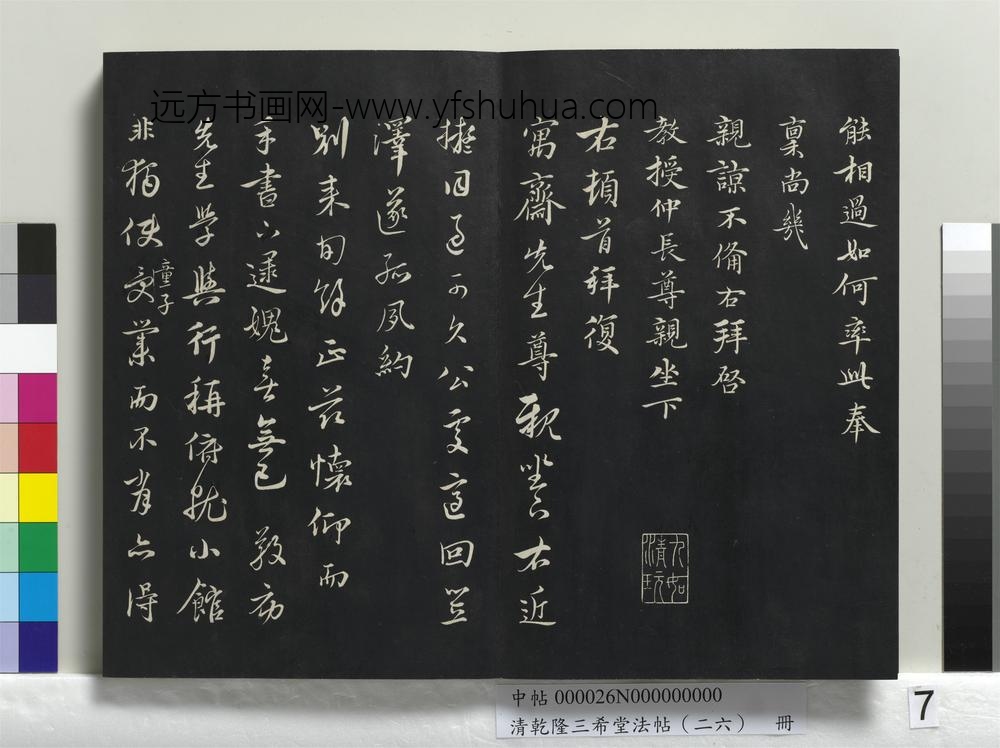 远方书画网-www.yfshuhua.com
能相過如何率此奉
稟尚幾
親諒不備右拜啓
教授仲長尊親坐下
右頓首拜復
寓齋先生尊親坐下右近
擬同過久公處適回豈
澤遂孤夙約
別來旬餘正茲懷仰而
手書下逮媿喜無已敬審
先生學與行稱俯就小館
非獨使童子受業而不肖亦得
九如清玩
中帖 000026N000000000
清乾隆三希堂法帖（二六） 冊
7